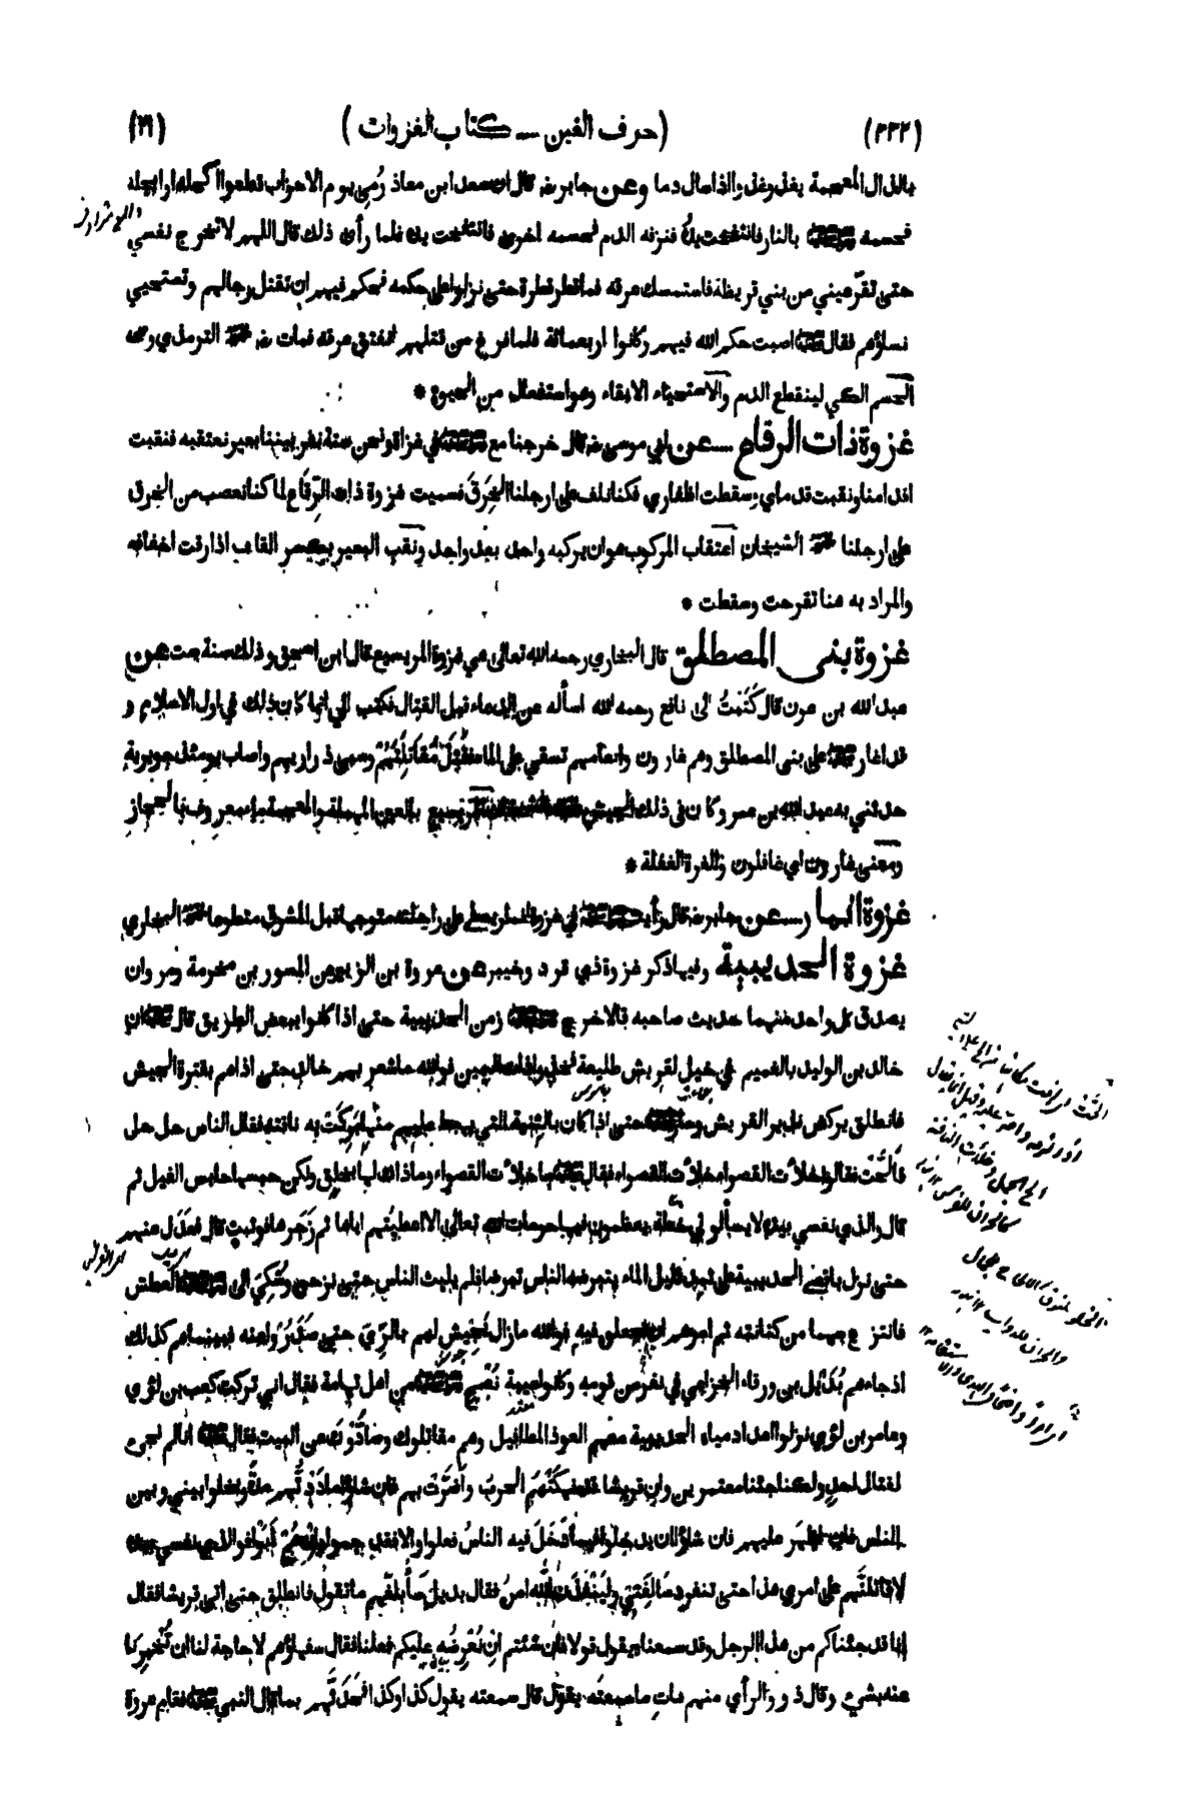 (٢٣٢) (حرف الغين — كتاب الغزوات) (٢١)
بالذال المعجمة يغذ وغذ واذا سال دما وعن جابر رضه قال ان سعد ابن معاذ رُمِيَ يوم الاحزاب قطعوا اكحله او ابجله
فحسمه بالنار فانتفخت يدهُ فنزفه الدم فحسمه اخرى فانتفخت يده فلما رأى ذلك قال اللهم لا تخرج نفسي
حتى تقرّ عيني من بني قريظة فاستمسك عرقه فما قطر قطرة حتى نزلوا على حكمه فحكم فيهم ان تقتل رجالهم وتستحيي
نساؤهم فقال اصبت حكم الله فيهم وكانوا اربعمائة فلما فرغ من قتلهم انفتق عرقه فمات رضه الترمذي وصحه
الحسم الكي لينقطع الدم والاستحياء الابقاء وهو استفعال من الحيوة *
غزوة ذات الرقاع — عن ابي موسى رضه قال خرجنا مع في غزاة ونحن ستة نفر بيننا بعير نعتقبه فنقبت
اقدامنا ونقبت قدماي وسقطت اظفاري فكنا نلف على ارجلنا الخِرَقَ فسميت غزوة ذات الرِّقَاعِ لما كنا نعصب من الخرق
على ارجلنا الشيخان اعتقاب المركوب هو ان يركبه واحد بعد واحد ونقب البعير بكسر القاف اذا رقت اخفافه
والمراد به هنا تقرحت وسقطت *
غزوة بنى المصطلق قال البخاري رحمه الله تعالى هي غزوة المريسيع قال ابن اسحق وذلك سنة ست عن
عبد الله بن عون قال كَتَبْتُ الى نافع رحمه الله اسأله عن الدعاء قبل القتال فكتب الي انما كان ذلك في اول الاسلام و
قد اغار على بنى المصطلق وهم غارون وانعامهم تسقي على الماء فَقَتَلَ مُقَاتِلَتَهُمْ وسبى ذراريهم واصاب يومئذ جويرية
حدثني به عبد الله بن عمر وكان فى ذلك الجيش المريسيع بالعين المهملة والمعجمة ماء معروف بالحجاز
ومعنى غارون اي غافلون والغرة الغفلة *
غزوة انمار — عن جابر رضه قال رأيت في غزوة انمار يصلي على راحلته متوجها قبل المشرق متطوعا البخاري
غزوة الحديبية وفيها ذكر غزوة ذي قرد وخيبر عن عروة بن الزبير عن المسور بن مخرمة ومروان
يصدق كل واحد منهما حديث صاحبه قالا خرج زمن الحديبية حتى اذا كانوا ببعض الطريق قال ان
خالد بن الوليد بالغميم في خيل لقريش طليعة فخذوا ذات اليمين فوالله ما شعر بهم خالد حتى اذا هم بقترة الجيش
فانطلق يركض نذيرا لقريش وسار حتى اذا كان بالثنية التي يهبط عليهم منها بَرَكَتْ به ناقته فقال الناس حل حل
فَاَلَحَّتْ فقالوا خلأت القصواء خلأت القصواء فقال ما خلأت القصواء وما ذاك لها بخلق ولكن حبسها حابس الفيل ثم
قال والذي نفسي بيده لا يسألوني خُطَّة يعظمون فيها حرمات الله تعالى الا اعطيتهم اياها ثم زَجَرها فوثبت قال فعَدَل عنهم
حتى نزل باقصى الحديبية على ثمد قليل الماء يتبرضه الناس تبرضا فلم يلبث الناس حتى نزحوه وشُكِيَ الى العطش
فانتزع سهما من كنانته ثم امرهم ان يجعلوه فيه فوالله ما زال يَجِيش لهم بالرِّيّ حتى صَدَرُوا عنه فبينما هم كذلك
اذ جاءهم بُدَيْل بن ورقاء الخزاعي في نفر من قومه وكانوا عيبة نُصْحِ من اهل تهامة فقال اني تركت كعب بن لؤي
وعامر بن لؤي نزلوا اعداد مياه الحديبية معهم العوذ المطافيل وهم مقاتلوك وصَادُّوكَ عن البيت فقال انا لم نجئ
لقتال احد ولكنا جئنا معتمرين وان قريشا قد نهِكَتْهُم الحربُ واَضَرَّتْ بهم فان شاؤا مادَدْتُهم مدة ويخلوا بيني وبين
الناس فان اظهر عليهم فان شاؤا ان يدخلوا فيما دَخَلَ فيه الناسُ فعلوا والا فقد جموا وان هُمْ اَبَوْا فو الذي نفسي بيده
لاقاتلنَّهم على امري هذا حتى تنفرد سَالِفَتِيْ ولَيُنْفِذَنَّ اللّٰه امرَهُ فقال بديل سَأُبلغهم ما تقول فانطلق حتى اتى قريشا فقال
انا قد جئناكم من هذا الرجل وقد سمعناه يقول قولا فان شئتم ان نُعْرِضُه عليكم فعلنا فقال سفهاؤهم لا حاجة لنا ان تُخْبِرنا
عنه بشيء وقال ذوو الرأي منهم هاتِ ما سمعتَه يقول قال سمعته يقول كذا وكذا فَحَدَّثَهم بما قال النبي فقام عروة